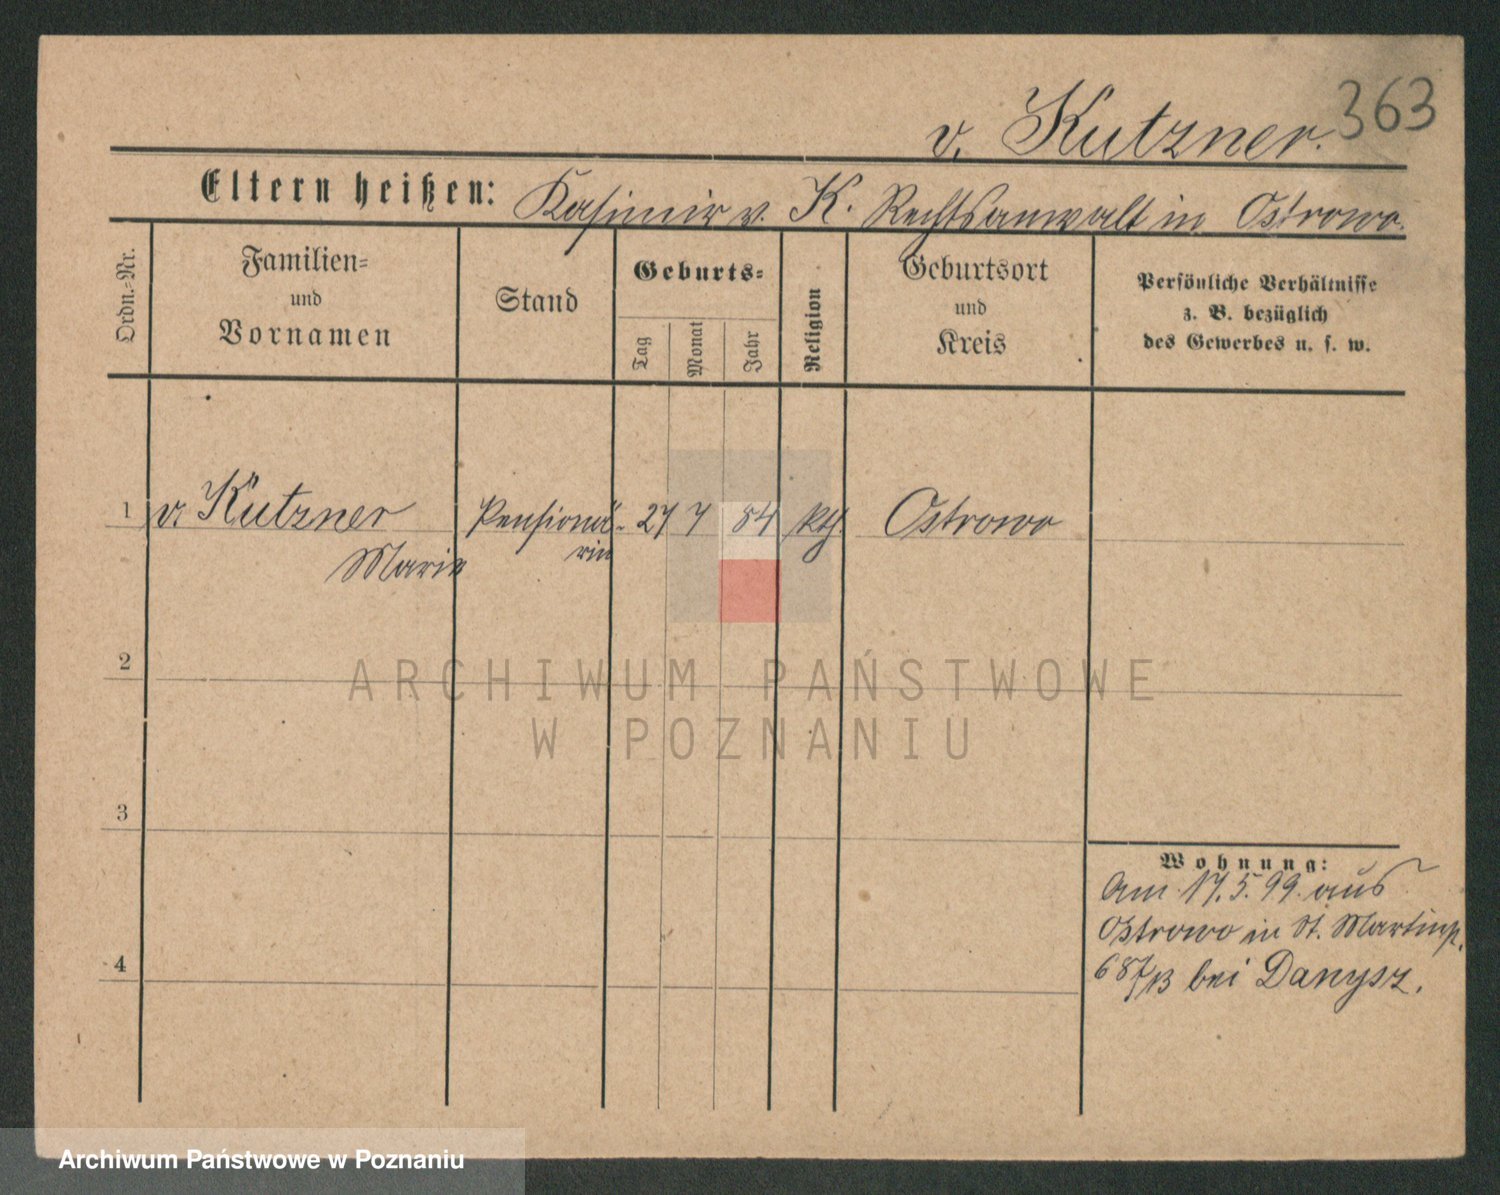 v. Kutzner. 363
Eltern heißen: Kasimir v. K. Rechtsanwalt in Ostrowo.
Ordn.-Nr.
Familien-
und
Vornamen
Stand
Geburts-
Tag
Monat
Jahr
Religion
Geburtsort
und
Kreis
Persönliche Verhältnisse
z. B. bezüglich
des Gewerbes u. s. w.
1 v. Kutzner Pensionä- 27 7 84 kth. Ostrowo
Marie rin
2
ARCHIWUM PAŃSTWOWE
W POZNANIU
3
Wohnung:
Am 17.5.99 aus
Ostrowo in St. Martinstr.
4
bei Danysz.
Archiwum Państwowe w Poznaniu